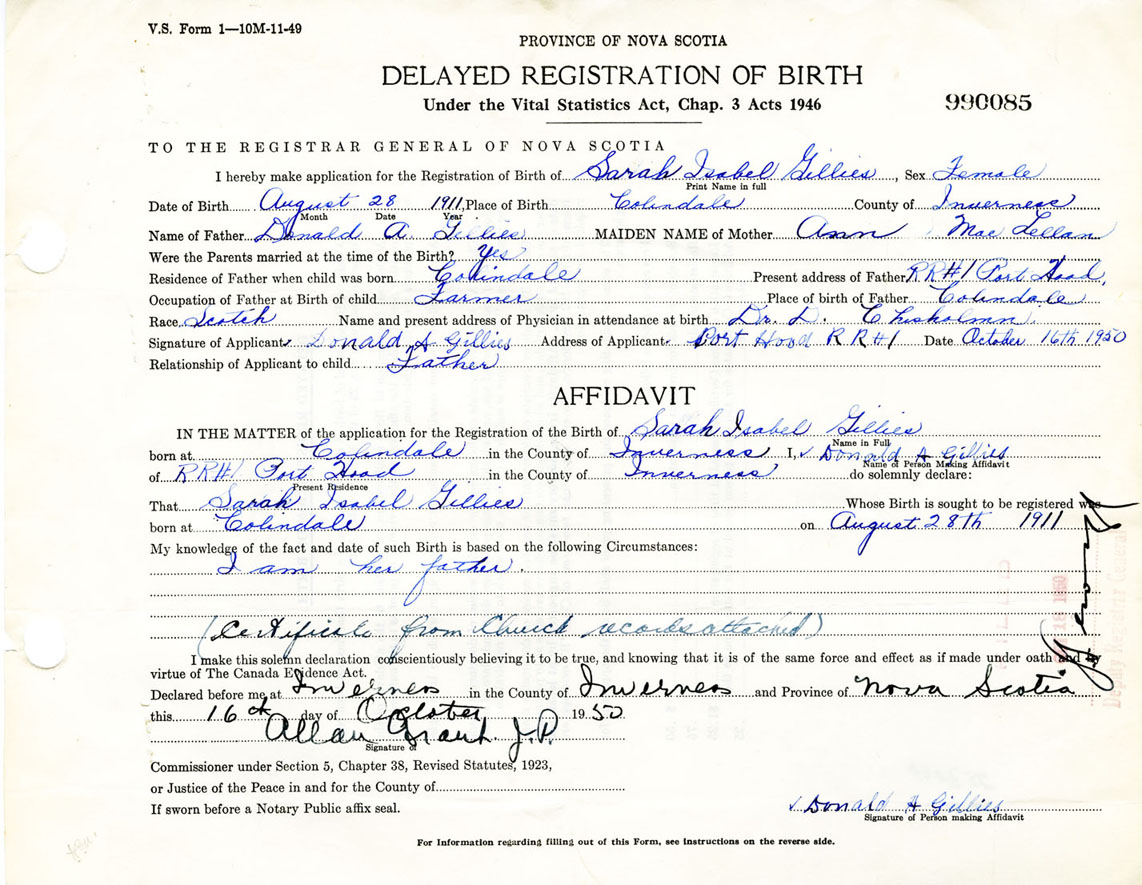 V.S. Form 1—10M-11-49
PROVINCE OF NOVA SCOTIA
DELAYED REGISTRATION OF BIRTH
Under the Vital Statistics Act, Chap. 3 Acts 1946
990085
TO THE REGISTRAR GENERAL OF NOVA SCOTIA
I hereby make application for the Registration of Birth of Sarah Isabel Gillies, Sex Female
Print Name in full
Date of Birth August 28 1911, Place of Birth Colindale County of Inverness
Month Date Year
Name of Father Donald A. Gillies MAIDEN NAME of Mother Ann Mac Lellan
Were the Parents married at the time of the Birth? Yes
Residence of Father when child was born Colindale Present address of Father RR#1 Port Hood,
Occupation of Father at Birth of child Farmer Place of birth of Father Colindale
Race Scotch Name and present address of Physician in attendance at birth Dr. D. Chisholmn.
Signature of Applicant Donald A Gillies Address of Applicant Port Hood R R#1 Date October 16th 1950
Relationship of Applicant to child Father
AFFIDAVIT
IN THE MATTER of the application for the Registration of the Birth of Sarah Isabel Gillies
Name in Full
born at Colindale in the County of Inverness I, Donald A Gillies
Name of Person Making Affidavit
of RR#1 Port Hood in the County of Inverness do solemnly declare:
Present Residence
That Sarah Isabel Gillies Whose Birth is sought to be registered was
born at Colindale on August 28th 1911
My knowledge of the fact and date of such Birth is based on the following Circumstances:
I am her father.
(Certificate from Church records attached)
I make this solemn declaration conscientiously believing it to be true, and knowing that it is of the same force and effect as if made under oath and by
virtue of The Canada Evidence Act.
Declared before me at Inverness in the County of Inverness and Province of Nova Scotia
this 16th day of October 1950
Allan Grant J.P.
Signature of
Commissioner under Section 5, Chapter 38, Revised Statutes, 1923,
or Justice of the Peace in and for the County of
If sworn before a Notary Public affix seal.
Donald A Gillies
Signature of Person making Affidavit
For Information regarding filling out of this Form, see instructions on the reverse side.